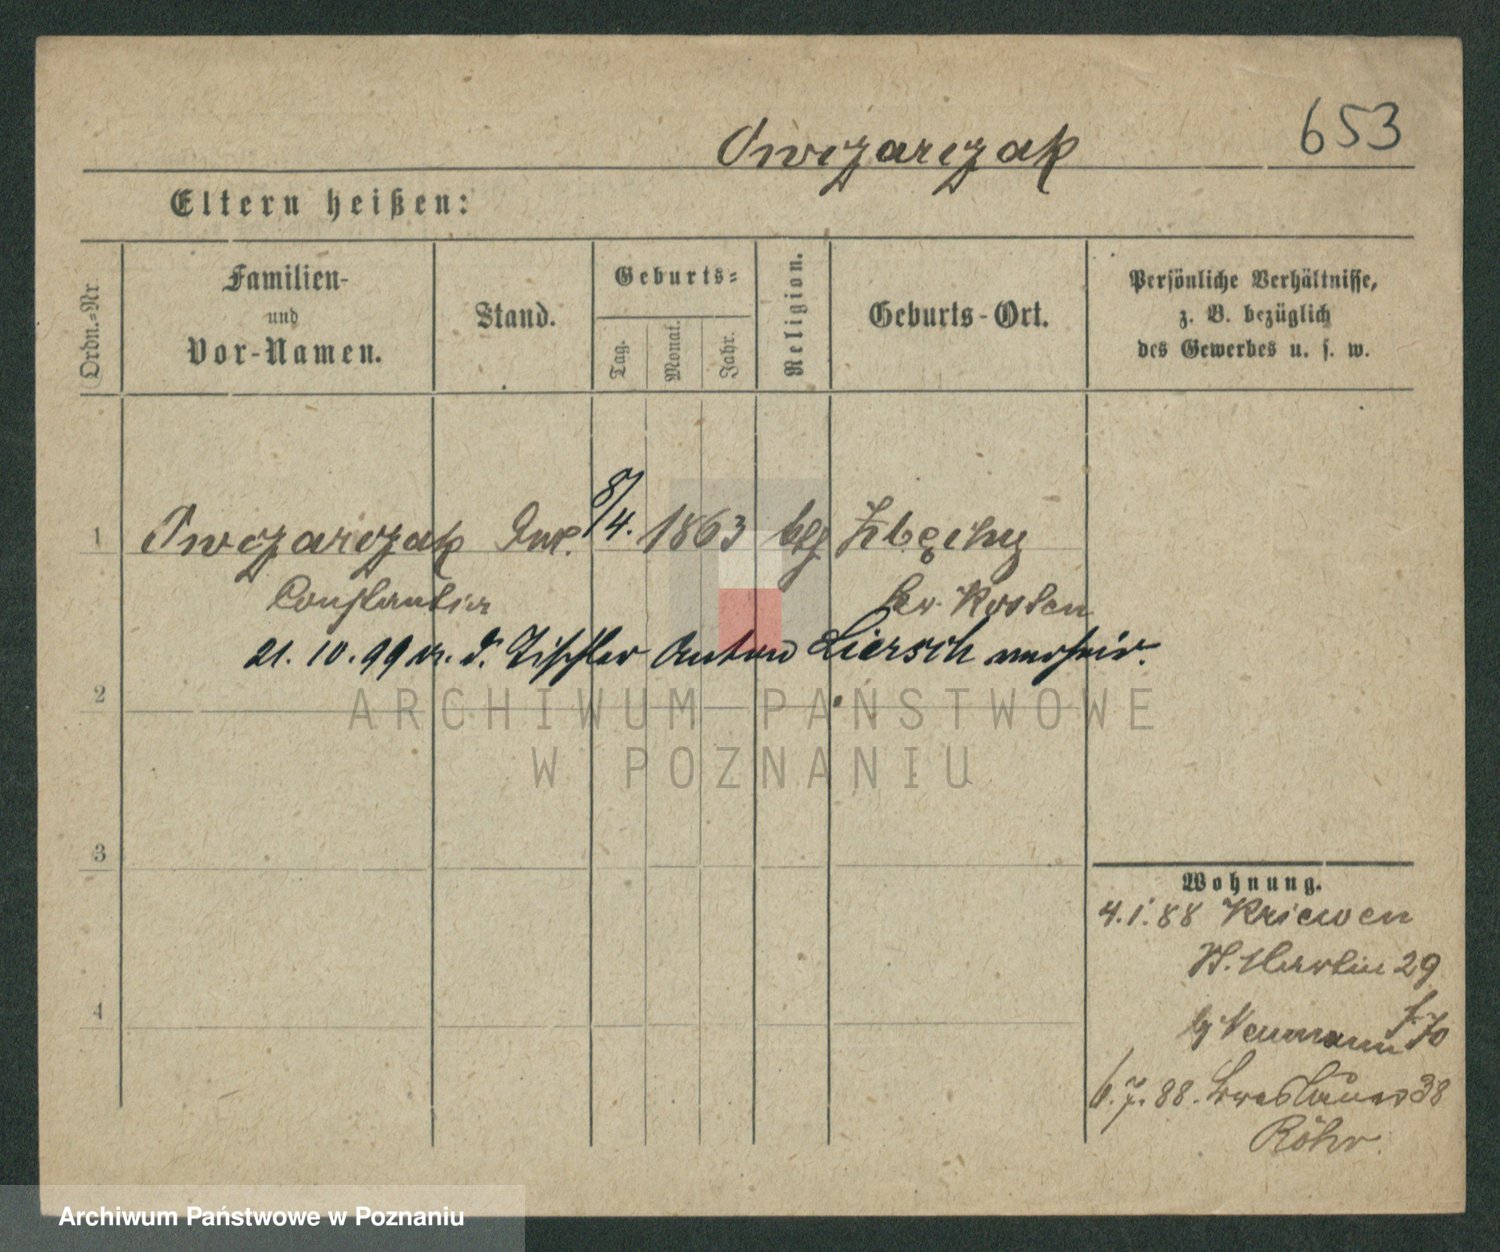 Owczarczak
653
Eltern heißen:
Ordn.-Nr.
Familien-
und
Vor-Namen.
Stand.
Geburts-
Tag.
Monat.
Jahr.
Religion.
Geburts-Ort.
Persönliche Verhältnisse,
z. B. bezüglich
des Gewerbes u. s. w.
1 Owczarczak 8/4. 1863 Zbęchy
Constantia Kr. Kosten
21. 10. 99 m. d. Tischler Anton Liersch verheir.
2
3
4
Wohnung.
4. 1. 88 Kriewen
St. Martin 29
b/ Neumann
6. 7. 88. Breslauer 38
Röhr.
ARCHIWUM PAŃSTWOWE
W POZNANIU
Archiwum Państwowe w Poznaniu